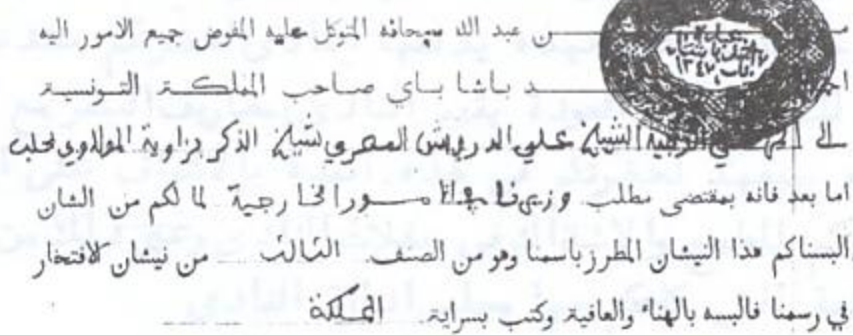 من عبد الله سبحانه المتوكل عليه المفوض جميع الامور اليه
احمد باشا باي صاحب المملكة التونسية
الى الوجيه الشيخ علي الدرويش المصري شيخ الذكر بزاوية المولاوي بحلب
اما بعد فانه بمقتضى مطلب وزيرنا للامور الخارجية لما لكم من الشان
البسناكم هذا النيشان المطرز باسمنا وهو من الصنف الثالث من نيشان الافتخار
في رسمنا فالبسه بالهناء والعافية وكتب بسراية المملكة
١٣٤٧